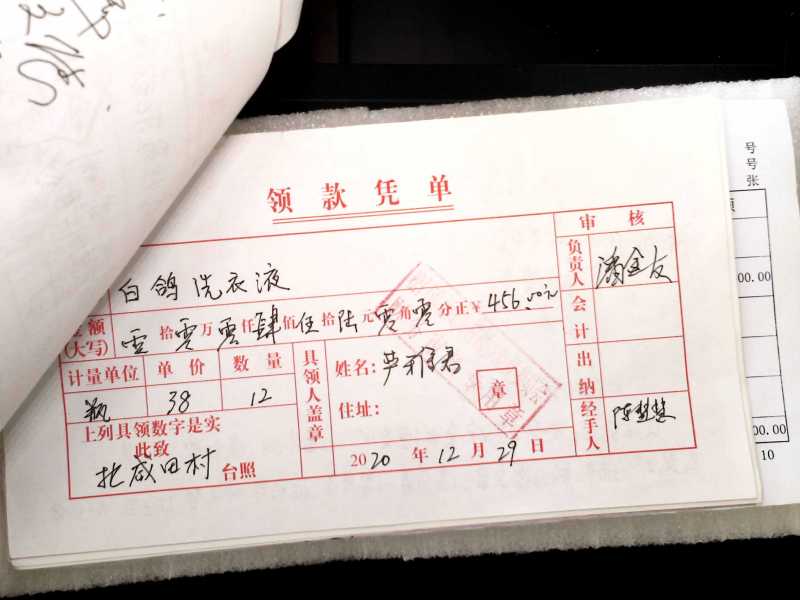 领款凭单
审核
白鸽洗衣液
负责人
潘金友
金额(大写) 零拾零万零仟肆佰伍拾陆元零角零分正¥456.00元
会计
计量单位 单价 数量
瓶 38 12
具领人盖章
姓名:
住址:
章
出纳
经手人
陈慧慧
上列具领数字是实
此致
北咸田村台照
2020年12月29日
号
号
张
00.00
00.00
10